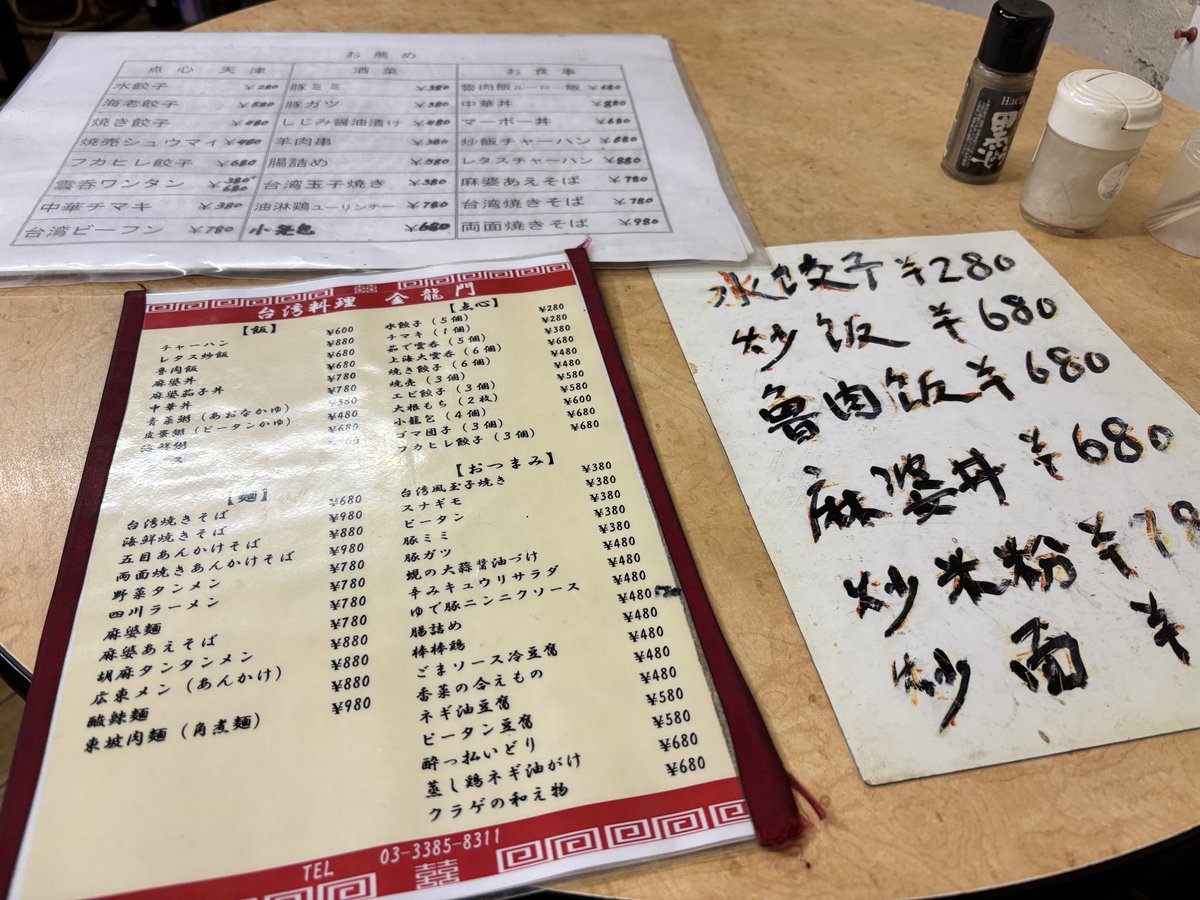 お薦め
点心 天津 酒菜 お食事
水餃子 ￥280 豚ミミ ￥380 魯肉飯ルーロー飯 ￥680
海老餃子 ￥580 豚ガツ ￥380 中華丼 ￥880
焼き餃子 ￥480 しじみ醤油漬け ￥480 マーボー丼 ￥680
焼売シュウマイ ￥480 羊肉串 ￥380 炒飯チャーハン ￥680
フカヒレ餃子 ￥680 腸詰め ￥580 レタスチャーハン ￥880
雲呑ワンタン ￥380 680 台湾玉子焼き ￥380 麻婆あえそば ￥780
中華チマキ ￥380 油淋鶏ユーリンチー ￥780 台湾焼きそば ￥780
台湾ビーフン ￥780 小籠包 ￥680 両面焼きそば ￥980
台湾料理 金龍門
【飯】
チャーハン ¥600
レタス炒飯 ¥880
魯肉飯 ¥680
麻婆丼 ¥680
麻婆茄子丼 ¥780
中華丼 ¥780
青菜粥（あおなかゆ） ¥380
皮蛋粥（ピータンかゆ） ¥480
海鮮粥 ¥680
【麺】
台湾焼きそば ¥680
海鮮焼きそば ¥980
五目あんかけそば ¥880
両面焼きあんかけそば ¥980
野菜タンメン ¥780
四川ラーメン ¥780
麻婆麺 ¥780
麻婆あえそば ¥780
胡麻タンタンメン ¥880
広東メン（あんかけ） ¥880
酸辣麺 ¥880
東坡肉麺（角煮麺） ¥980
【点心】
水餃子（5個） ¥280
チマキ（1個） ¥280
茹で雲呑（5個） ¥380
上海大雲呑（6個） ¥680
焼き餃子（6個） ¥480
焼売（3個） ¥480
エビ餃子（3個） ¥580
大根もち（2枚） ¥580
小籠包（4個） ¥600
ゴマ団子（3個） ¥680
フカヒレ餃子（3個） ¥680
【おつまみ】
台湾風玉子焼き ¥380
スナギモ ¥380
ピータン ¥380
豚ミミ ¥380
豚ガツ ¥380
蜆の大蒜醤油づけ ¥480
辛みキュウリサラダ ¥480
ゆで豚ニンニクソース ¥480
腸詰め ¥480 580
棒棒鶏 ¥480
ごまソース冷豆腐 ¥480
香菜の合えもの ¥480
ネギ油豆腐 ¥480
ピータン豆腐 ¥580
酔っ払いどり ¥580
蒸し鶏ネギ油がけ ¥680
クラゲの和え物 ¥680
TEL 03-3385-8311
水饺子 ¥280
炒饭 ¥680
魯肉饭 ¥680
麻婆丼 ¥680
炒米粉 ¥78
炒面 ¥